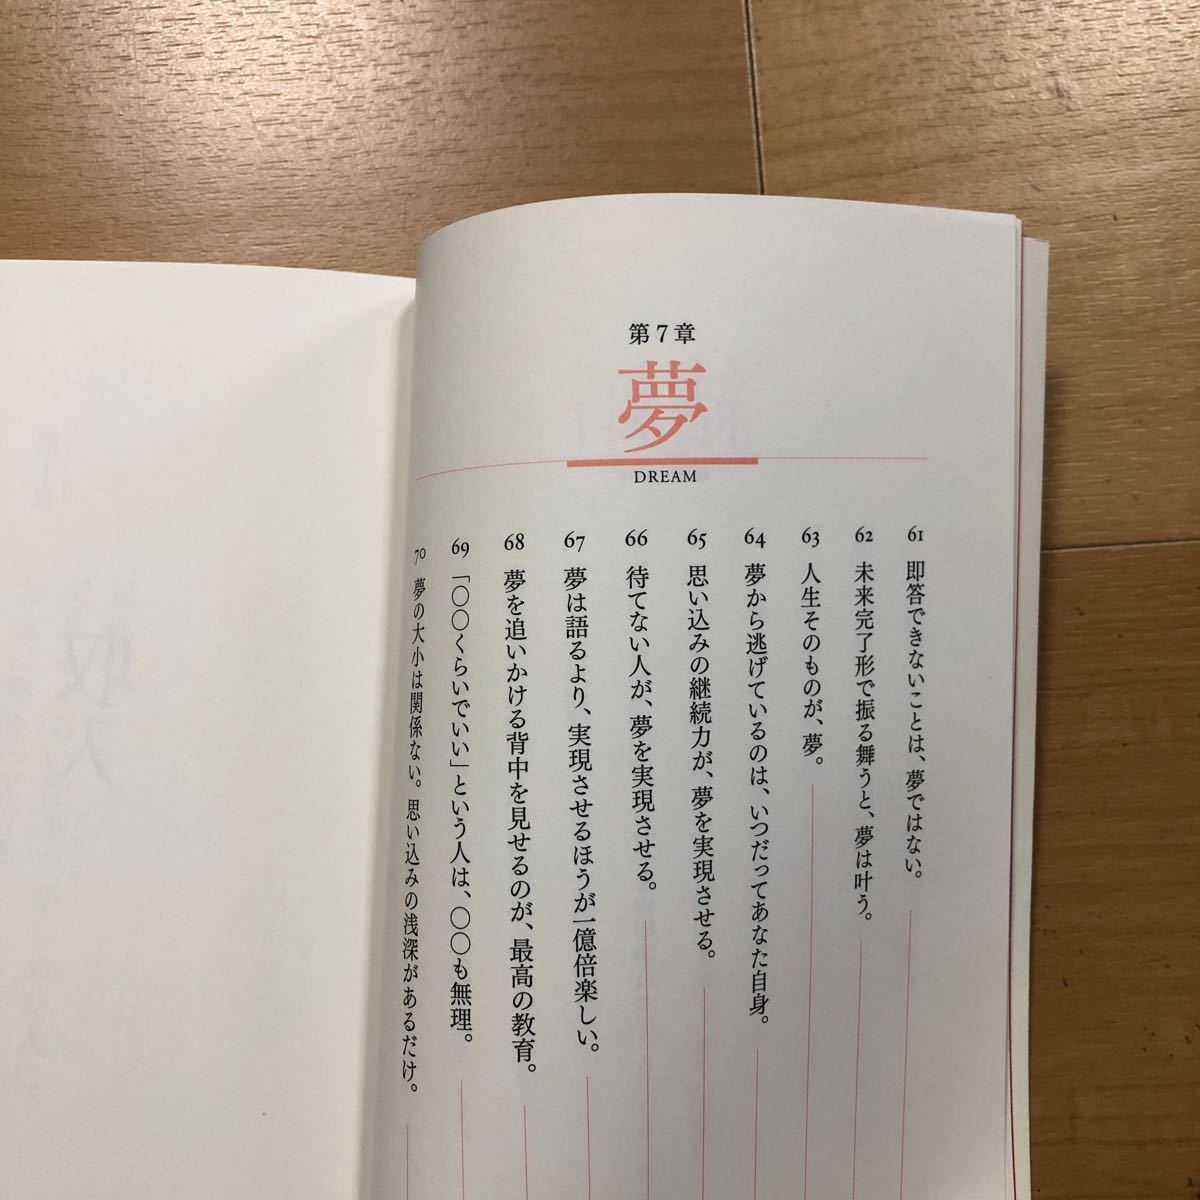 第7章
夢
DREAM
61 即答できないことは、夢ではない。
62 未来完了形で振る舞うと、夢は叶う。
63 人生そのものが、夢。
64 夢から逃げているのは、いつだってあなた自身。
65 思い込みの継続力が、夢を実現させる。
66 待てない人が、夢を実現させる。
67 夢は語るより、実現させるほうが一億倍楽しい。
68 夢を追いかける背中を見せるのが、最高の教育。
69 「〇〇くらいでいい」という人は、〇〇も無理。
70 夢の大小は関係ない。思い込みの浅深があるだけ。